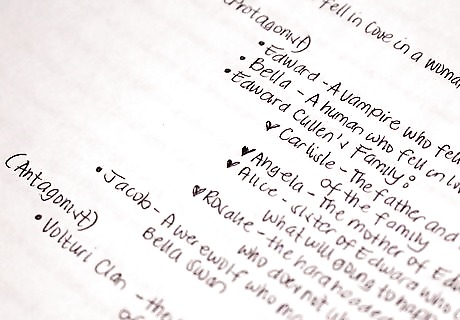 fell in love in a woman
(Protagonist)
• Edward - A vampire who fell
• Bella - A human who fell in lov
• Edward Cullen's Family:
Carlisle - The Father and
of the family
Angela - The mother of Edw
Alice - sister of Edward who c
what will going to happ
Rosalie - the hard headed
who does not
• Jacob - A werewolf who
Bella Swan
(Antagonist)
• Volturi Clan - the
of